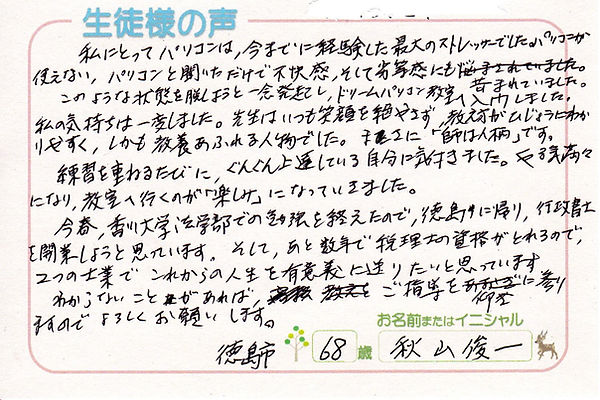 生徒様の声
私にとってパソコンは、今までに経験した最大のストレッサーでした。パソコンが
使えない、パソコンと聞いただけで不快感、そして劣等感にも苦まれていました。
このような状態を脱しようと一念発起し、ドリームパソコン教室へ入会しました。
私の気持ちは一変しました。先生はいつも笑顔を絶やさず、教え方がひじょうにわか
りやすく、しかも教養あふれる人物でした。まさに「師は人柄」です。
練習を重ねるたびに、ぐんぐん上達している自分に気付きました。やる気満々
になり、教室へ行くのが「楽しみ」になっていきました。
今春、香川大学法学部での勉強を終えたので、徳島に帰り、行政書士
を開業しようと思っています。そして、あと数年で税理士の資格がとれるので、
2つの士業でこれからの人生を有意義に送りたいと思っています
わからないことがあれば、ご指導を仰ぎに参り
ますのでよろしくお願いします。
お名前またはイニシャル
徳島市 68歳 秋山俊一